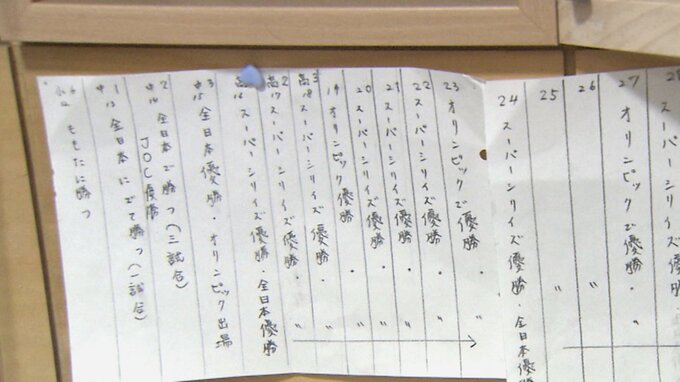 小6 12 ももたに勝つ
中1 13 全日本にでて勝つ(一試合)
中2 14 全日本で勝つ(三試合)
JOC優勝
中3 15 全日本優勝・オリンピック出場
高1 16 スーパーシリイズ優勝・全日本優勝
高2 17 スーパーシリイズ優勝・〃
高3 18 スーパーシリイズ優勝・〃
19 オリンピック優勝・〃
20 スーパーシリイズ優勝・〃
21 スーパーシリイズ優勝・〃
22 スーパーシリイズ優勝・〃
23 オリンピックで優勝・〃
24 スーパーシリイズ優勝・全日本優勝
25 〃
26 〃
27 オリンピックで優勝・〃
28 スーパーシリイズ